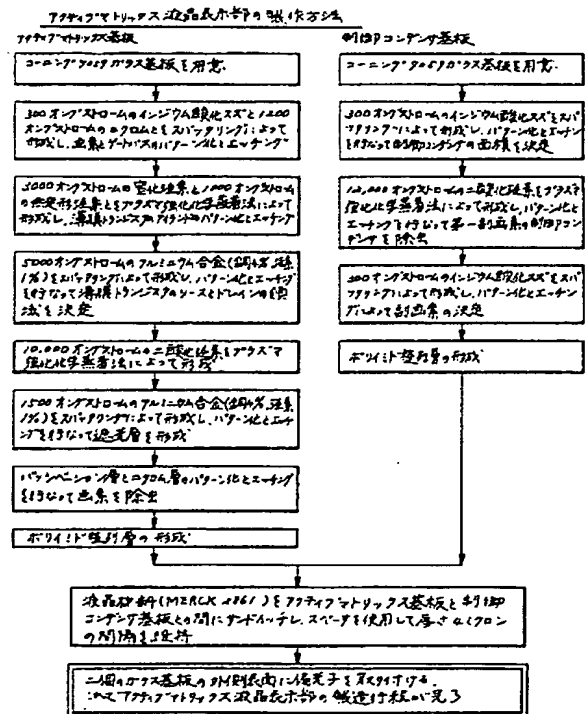 アクティブマトリックス液晶表示部の製作方法
アクティブマトリックス基板
コーニング7059ガラス基板を用意
300オングストロームのインジウム酸化スズと1200
オングストロームのニクロムとをスパッタリングによって
形成し、画素とゲートバスのパターン化とエッチング
3000オングストロームの窒化硅素と1000オングストローム
の無定形硅素とをプラズマ強化化学蒸着法によって
形成し、薄膜トランジスタのアイランドのパターン化とエッチング
5000オングストロームのアルミニウム合金(銅4%、硅素
1%)をスパッタリングによって形成し、パターン化とエッチング
を行なって薄膜トランジスタのソースとドレインの領
域を決定
10,000オングストロームの二酸化硅素をプラズマ
強化化学蒸着法によって形成
1500オングストロームのアルミニウム合金(銅4%、硅素
1%)をスパッタリングによって形成し、パターン化とエッ
チングを行なって遮光層を形成
パッシベーション層とニクロム層のパターン化とエッチング
を行なって画素を露出
ポリイミド整列層の形成
制御コンデンサ基板
コーニング7059ガラス基板を用意
300オングストロームのインジウム酸化スズをスパ
ッタリングによって形成し、パターン化とエッチング
を行なって制御コンデンサの面積を決定
10,000オングストロームの二酸化硅素をプラズマ
強化化学蒸着法によって形成し、パターン化と
エッチングを行なって第一副画素の制御コン
デンサを露出
300オングストロームのインジウム酸化スズをスパッ
タリングによって形成し、パターン化とエッチ
ングによって副画素の決定
ポリイミド整列層の形成
液晶材料(MERCK 1861)をアクティブマトリックス基板と制御
コンデンサ基板との間にサンドイッチし、スペーサを使用して厚さ4ミクロン
の間隔を維持
二個のガラス基板の外側表面に偏光子を取り付ける。
これでアクティブマトリックス液晶表示部の製造行程が完了